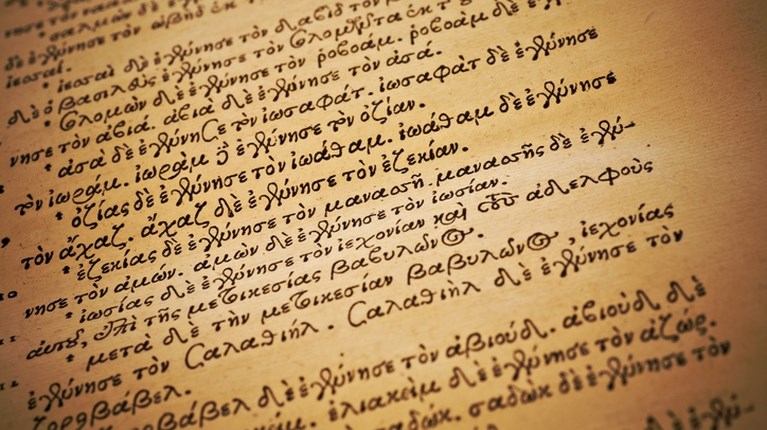 σαλμών δὲ ἐγέννησε τὸν
δὲ ἐγέννησε τὸν ὠβὴδ ἐκ
ἰεσσαί.
ἰεσσαὶ δὲ ἐγέννησε τὸν δαβὶδ τὸν
δὲ ὁ βασιλεὺς ἐγέννησε τὸν σολομῶντα ἐκ τ
σολομὼν δὲ ἐγέννησε τὸν ῥοβοάμ. ῥοβοὰμ δὲ
νησε τὸν ἀβιά. ἀβιὰ δὲ ἐγέννησε τὸν ἀσά.
ἀσὰ δὲ ἐγέννησε τὸν ἰωσαφάτ. ἰωσαφὰτ δὲ ἐγέννησε
τὸν ἰωράμ. ἰωρὰμ δὲ ἐγέννησε τὸν ὀζίαν.
ὀζίας δὲ ἐγέννησε τὸν ἰωάθαμ. ἰωάθαμ δὲ ἐγέννησε
τὸν ἄχαζ. ἄχαζ δὲ ἐγέννησε τὸν ἐζεκίαν.
ἐζεκίας δὲ ἐγέννησε τὸν μανασσῆ. μανασσῆς δὲ ἐγέν-
νησε τὸν ἀμών. ἀμὼν δὲ ἐγέννησε τὸν ἰωσίαν.
ἰωσίας δὲ ἐγέννησε τὸν ἰεχονίαν καὶ τοὺς ἀδελφοὺς
αὐτοῦ, ἐπὶ τῆς μετοικεσίας βαβυλῶνος.
μετὰ δὲ τὴν μετοικεσίαν βαβυλῶνος, ἰεχονίας
ἐγέννησε τὸν σαλαθιήλ. σαλαθιὴλ δὲ ἐγέννησε τὸν
ζοροβάβελ.
βάβελ δὲ ἐγέννησε τὸν ἀβιούδ. ἀβιοὺδ δὲ
ἐλιακεὶμ δὲ ἐγέννησε τὸν ἀζώρ.
σαδώκ. σαδὼκ δὲ ἐγέννησε τὸν